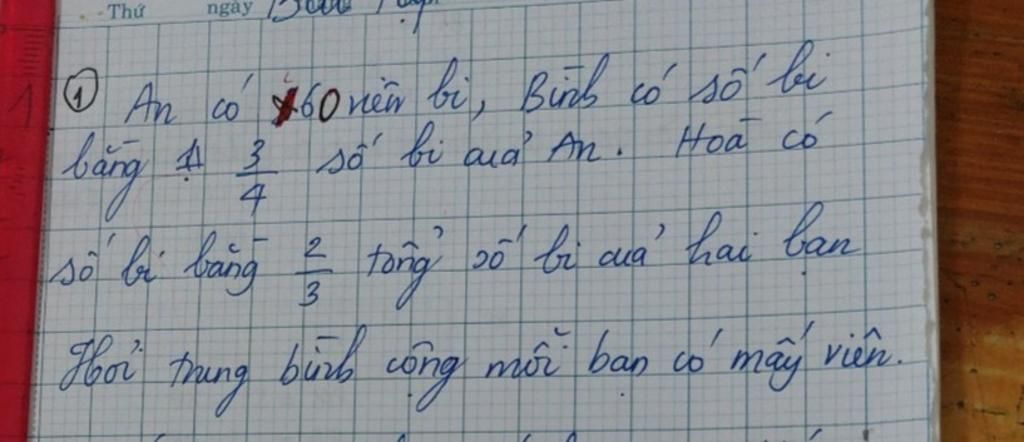 Thứ ngày
① An có 60 viên bi, Bình có số bi
bằng 3/4 số bi của An. Hoa có
số bi bằng 2/3 tổng số bi của hai bạn
Hỏi trung bình cộng mỗi bạn có mấy viên.